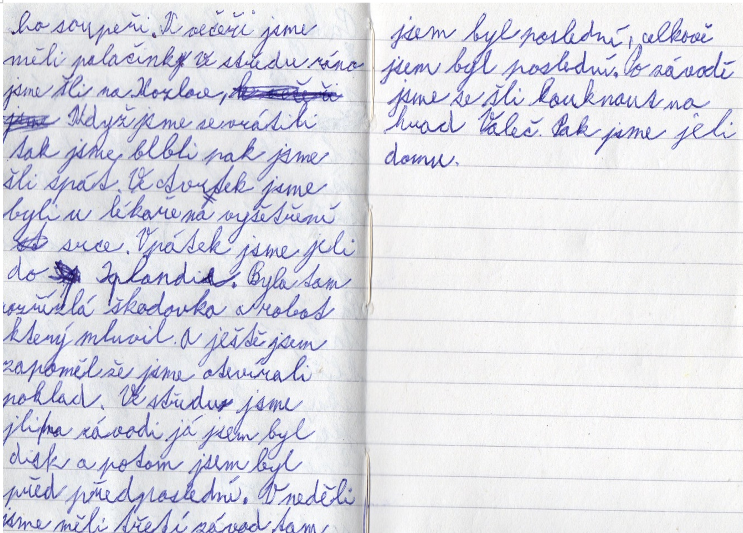 ho soupeři. K večeři jsme
měli palačinky Ve středu ráno
jsme šli na Kozlove,
Když jsme se vrátili
tak jsme blbli pak jsme
šli spát. Ve čtvrtek jsme
byli u lékaře na vyšetření
srce. V pátek jsme jeli
do Iqlandie. Byla tam
rozřízlá škodovka a robot
který mluvil. A ještě jsem
zapoměl že jsme otevírali
poklad. Ve středu jsme
jli na závodi já jsem byl
disk a potom jsem byl
před předposlední. V neděli
jsme měli třetí závod tam
jsem byl poslední, celkově
jsem byl poslední. Po závodě
jsme se šli kouknout na
hrad Valeč. Pak jsme jeli
domu.